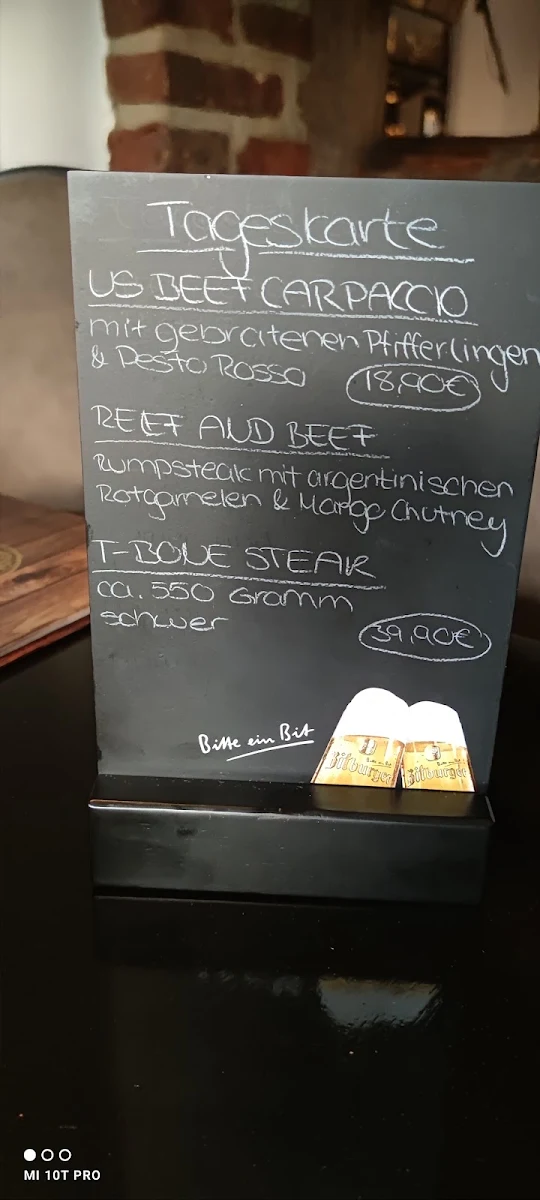 Tageskarte
US BEEF CARPACCIO
mit gebratenen Pfifferlingen
& Pesto Rosso 18,90€
REEF AND BEEF
Rumpsteak mit argentinischen
Rotgarnelen & Mango Chutney
T-BONE STEAK
ca. 550 Gramm
schwer
39,90€
Bitte ein Bit
Bitburger Bitburger
MI 10T PRO